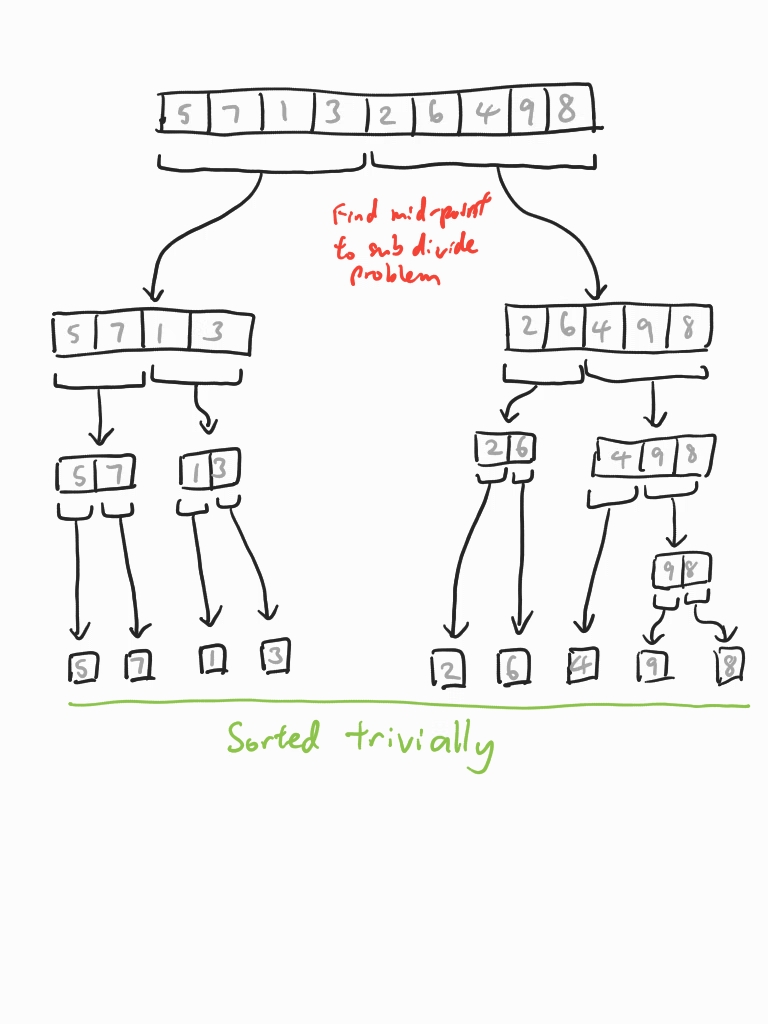 5 7 1 3 2 6 4 9 8
Find mid-point
to subdivide
problem
5 7 1 3
2 6 4 9 8
5 7
1 3
2 6
4 9 8
9 8
5 7 1 3 2 6 4 9 8
Sorted trivially